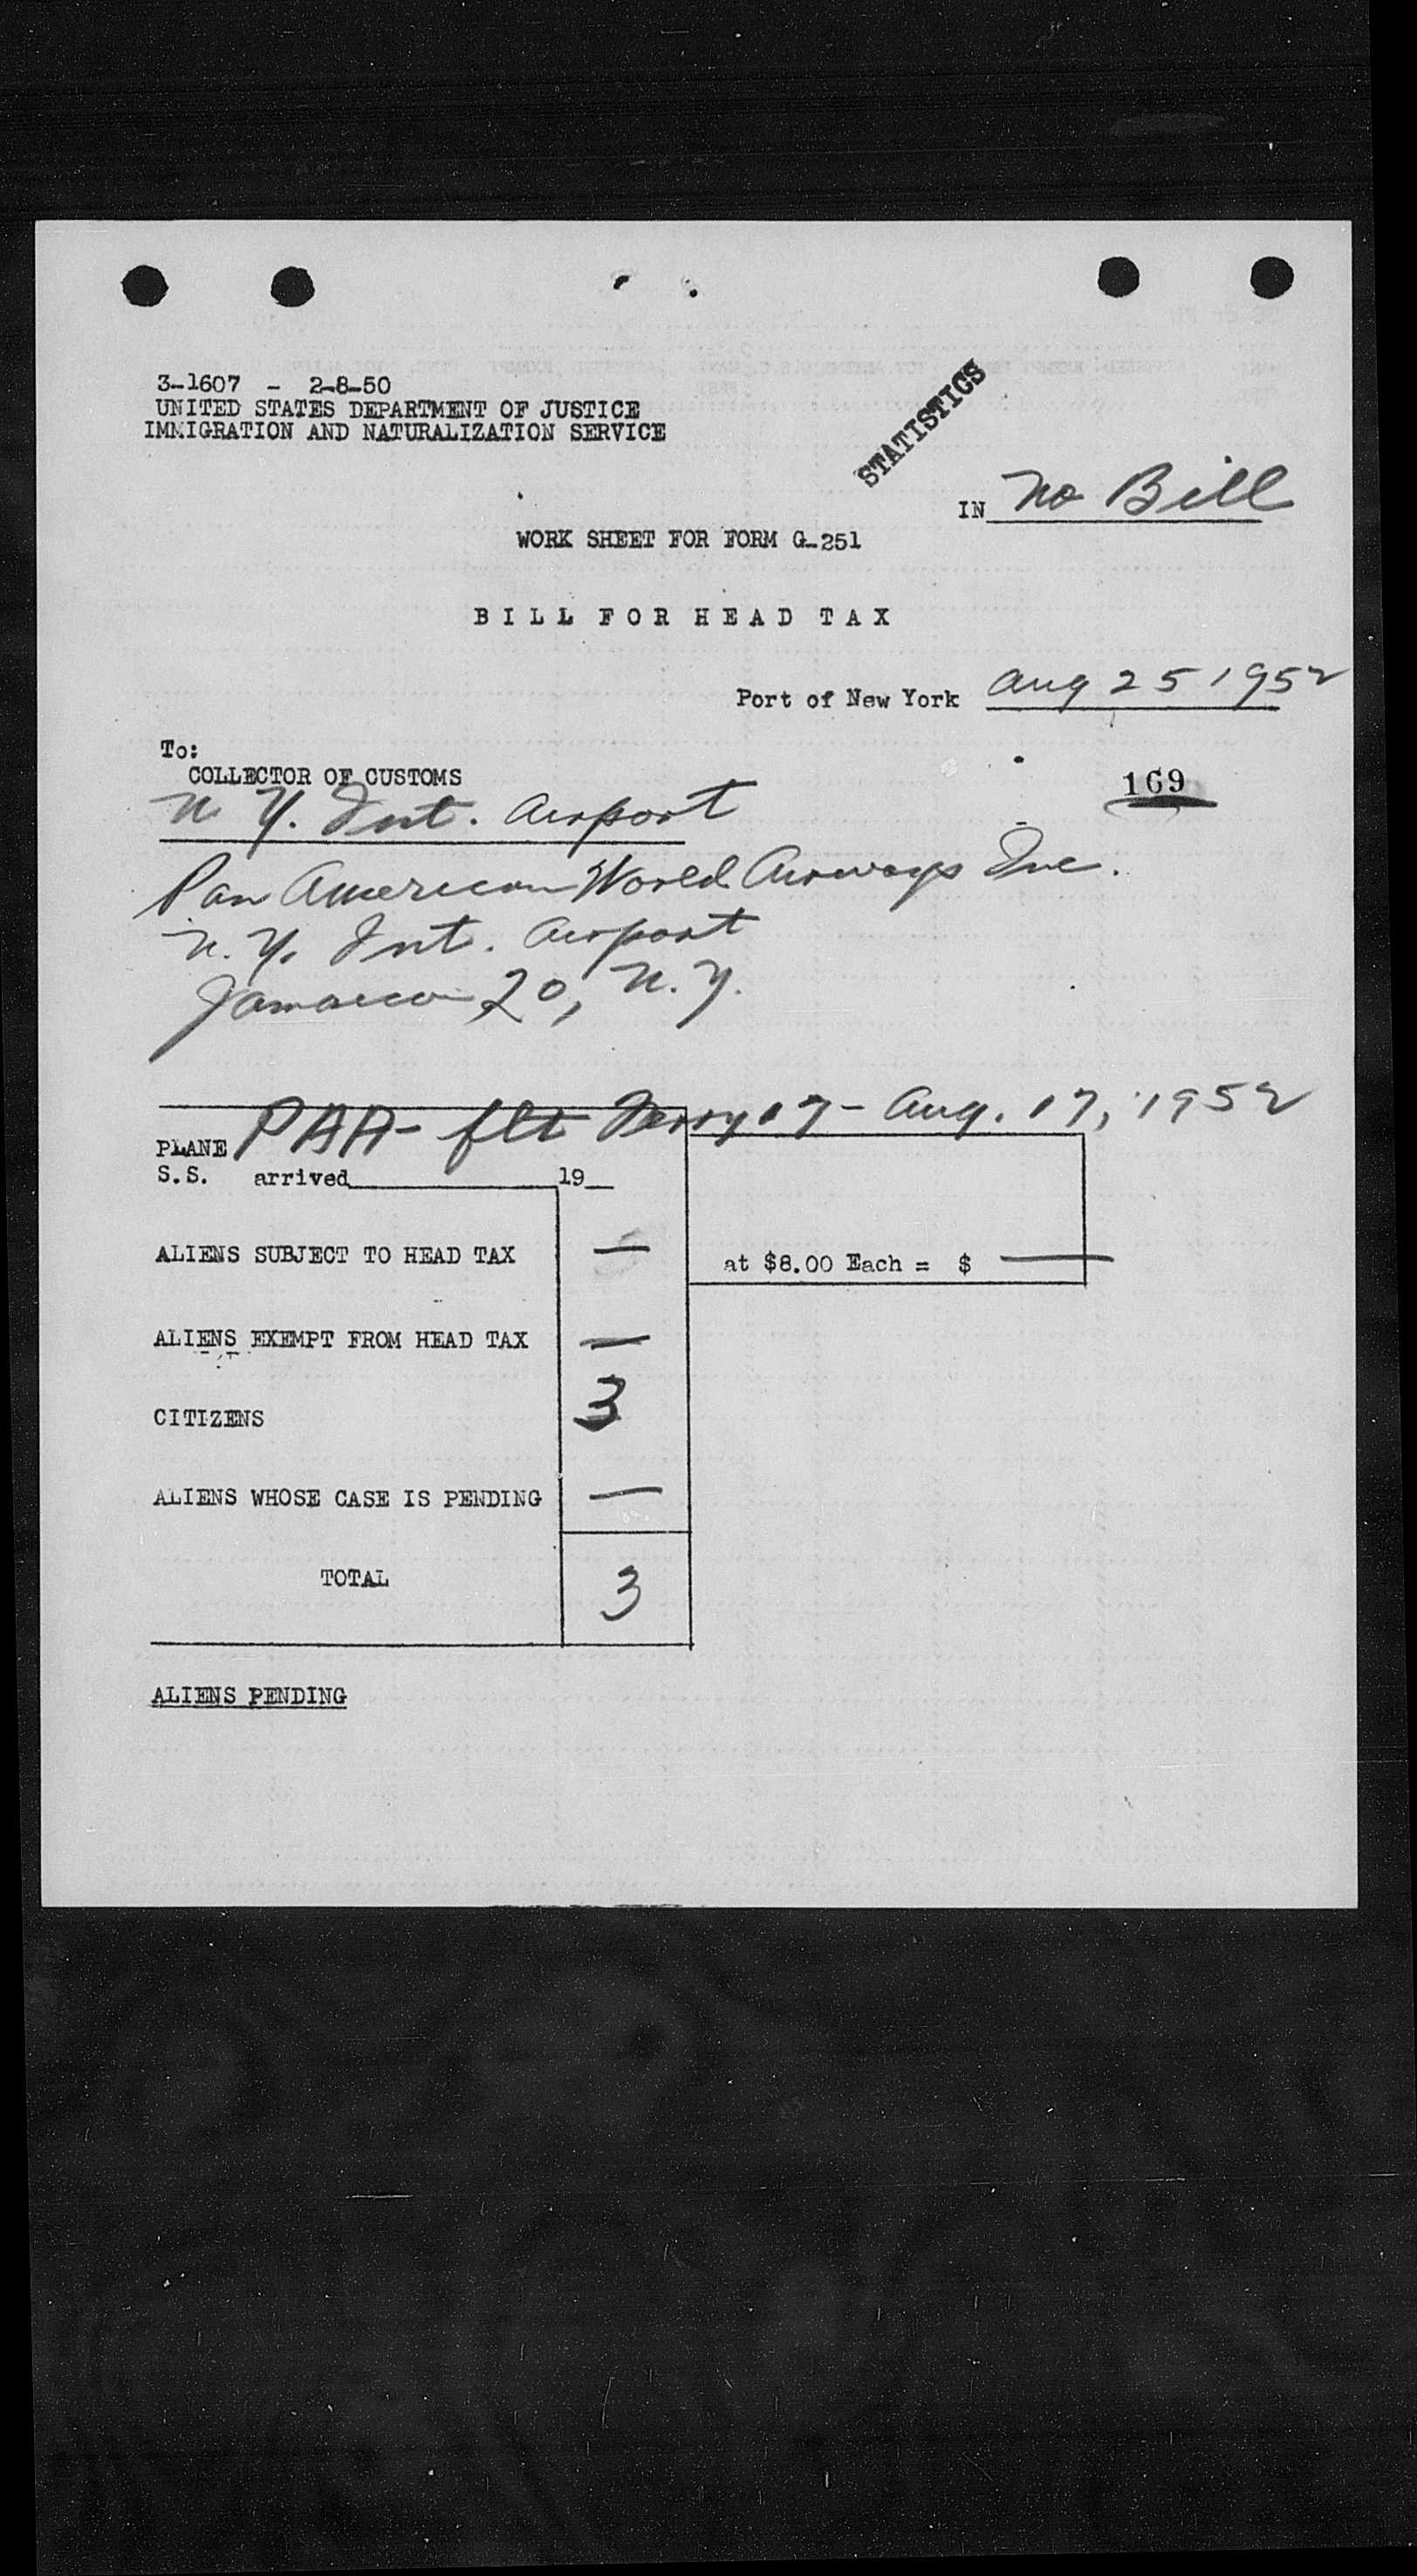 3-1607 - 2-8-50
UNITED STATES DEPARTMENT OF JUSTICE
IMMIGRATION AND NATURALIZATION SERVICE
STATISTICS
IN No Bill
WORK SHEET FOR FORM G-251
BILL FOR HEAD TAX
Port of New York Aug 25 1952
To:
COLLECTOR OF CUSTOMS
169
N. Y. Int. Airport
Pan American World Airways Inc.
N. Y. Int. Airport
Jamaica 20, N. Y.
PLANE PAA- flt Ferry 17- Aug. 17, 1952
S.S. arrived 19
ALIENS SUBJECT TO HEAD TAX — at $8.00 Each = $ —
ALIENS EXEMPT FROM HEAD TAX —
CITIZENS 3
ALIENS WHOSE CASE IS PENDING —
TOTAL 3
ALIENS PENDING